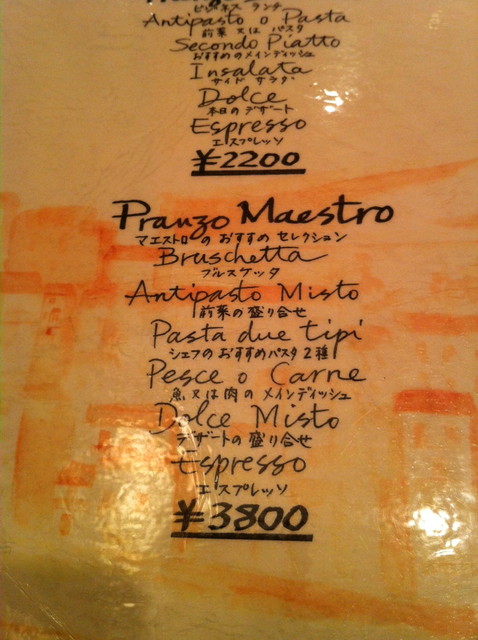 ビジネス ランチ
Antipasto o Pasta
前菜 又は パスタ
Secondo Piatto
おすすめのメインディッシュ
Insalata
サイド サラダ
Dolce
本日の デザート
Espresso
エスプレッソ
¥2200
Pranzo Maestro
マエストロの おすすめ セレクション
Bruschetta
ブルスケッタ
Antipasto Misto
前菜の盛り合せ
Pasta due tipi
シェフの おすすめパスタ 2種
Pesce o Carne
魚 又は 肉の メインディッシュ
Dolce Misto
デザートの盛り合せ
Espresso
エスプレッソ
¥3800